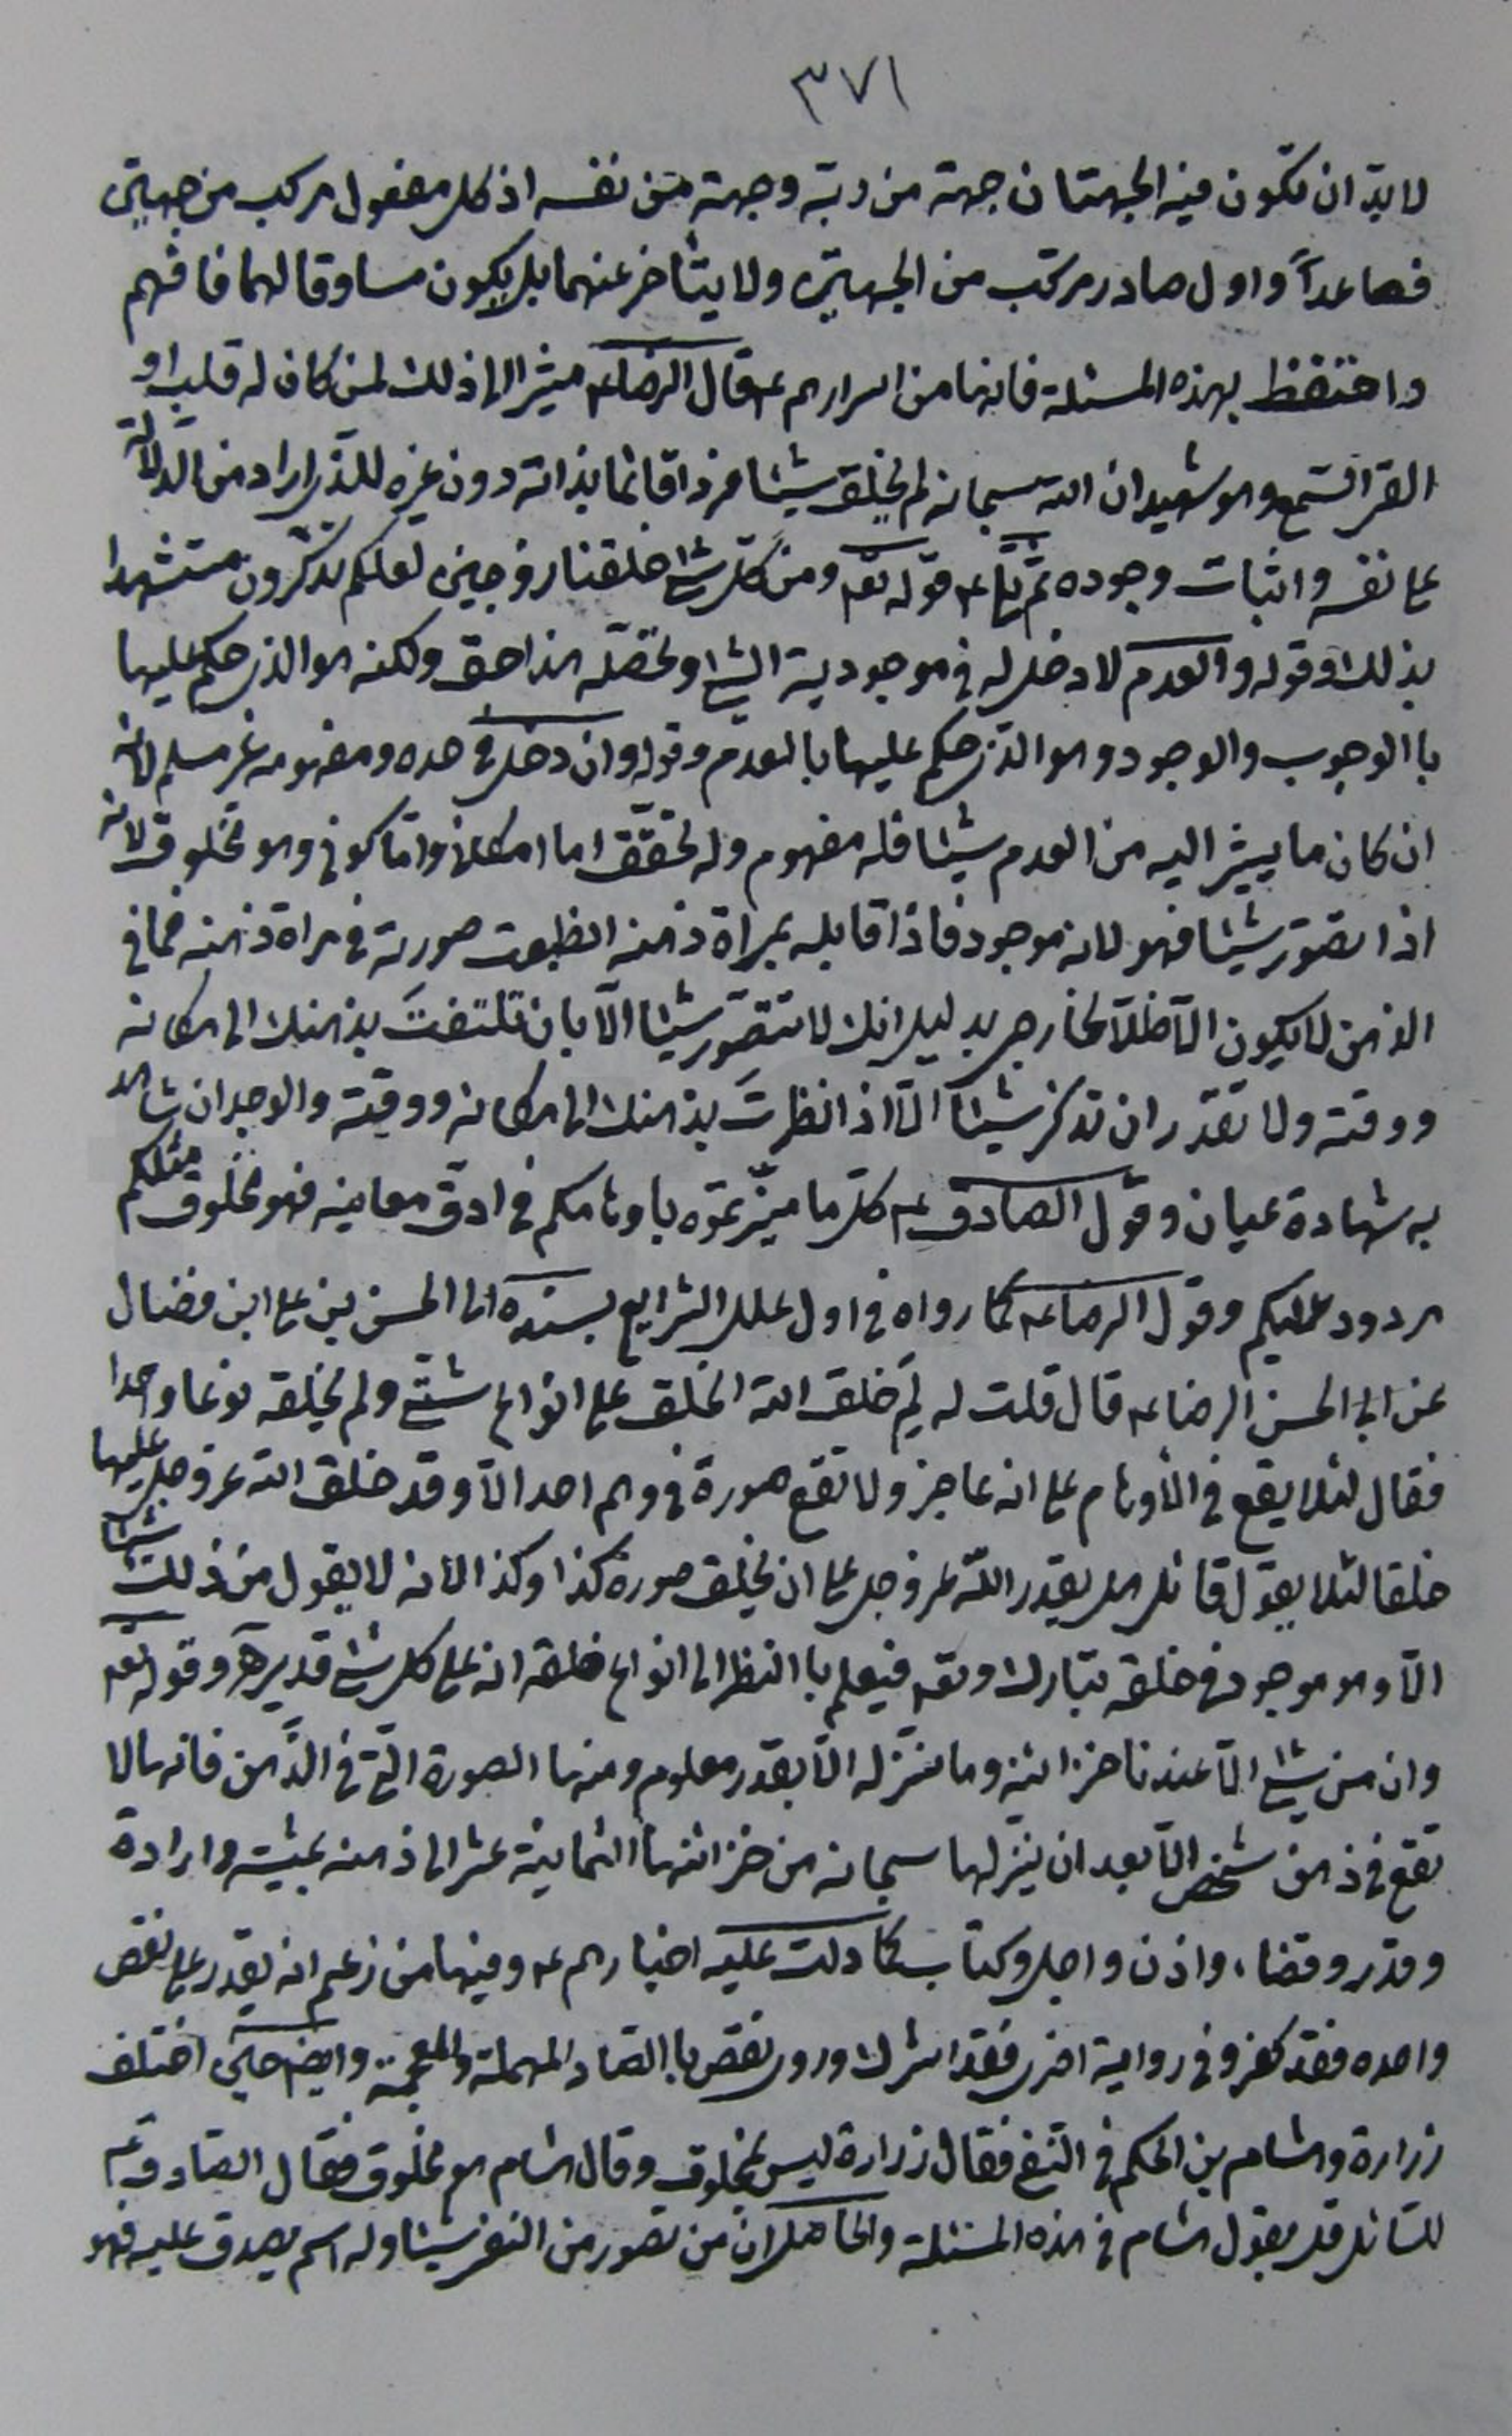 ٣٧١
لا بدّ ان تكون فيه الجهتان جهة من ربّه وجهة من نفسه اذ كل مفعول مركب من جهتين
فصاعداً واول صادر مركب من الجهتين ولا يتأخر عنهما بل يكون مساوقا لهما فافهم
واحتفظ بهذه المسئلة فانها من اسرارهم ع‍ قال الرضا ع‍ مشيرا الى ذلك لمن كان له قلب او
القى السمع وهو شهيد ان الله سبحانه لم يخلق شيئا فردا قائما بذاته دون غيره للذي اراد من الدلالة
على نفسه واثبات وجوده ثم تلا ع‍ قوله تع‍ ومن كل شئ خلقنا زوجين لعلكم تذكرون مستشهدا
بذلك وقوله والعدم لا دخل له في موجودية الشئ وتحصّله هذا حق ولكنه هو الذي حكم عليها
باالوجوب والوجود وهو الذي حكم عليها باالعدم وقوله وان دخل في حده ومفهومه غير مسلم لانه
ان كان ما يشير اليه من العدم شيئا فله مفهوم وله تحقق اما امكاني واما كوني وهو مخلوق لانه
اذا تصوّر شيئا فهو لانه موجود فاذا قابله بمراة ذهنه انطبعت صورته في مراة ذهنه فما في
الذهن لا يكون الّا ظلّا لخارجي بدليل انك لا تتصوّر شيئا الّا بان تلتفتَ بذهنك الى مكانه
ووقته ولا تقدر ان تذكر شيئاً الّا اذا نظرتَ بذهنك الى مكانه ووقته والوجدان شاهد
به شهادة عيان وقول الصادق ع‍ كل ما ميّزتموه باوهامكم في ادق معانيه فهو مخلوق مثلكم
مردود عليكم وقول الرضا ع‍ كما رواه في اول علل الشرايع بسنده الى الحسن بن علي ابن فضال
عن ابي الحسن الرضا ع‍ قال قلت له لِمَ خلق الله الخلق على انواع شتّى ولم يخلقه نوعا واحدا
فقال لئلا يقع في الأوهام على انه عاجز ولا تقع صورة في وهم احد الّا وقد خلق الله عز وجل عليها
خلقا لئلا يقول قائل هل يقدر الله عز وجل على ان يخلق صورة كذا وكذا لانه لا يقول من ذلك شيئا
الّا وهو موجود في خلقه تبارك وتع‍ فيعلم باالنظر الى انواع خلقه انه على كل شئ قدير هـ وقوله تع‍
وان من شئ الّا عندنا خزائنه وما ننزله الّا بقدر معلوم ومنها الصورة التي في الذّهن فانها لا
تقع في ذهن شخص الّا بعد ان ينزلها سبحانه من خزائنها الثمانية عشر الى ذهنه بمشية وارادة
وقدر وقضاء واذن واجل وكتاب كما دلت عليه اخبارهم ع‍ وفيها من زعم انه يقدر على نقص
واحده فقد كفر وفي رواية اخرى فقد اشرك وروى نقص باالصاد المهملة والمعجمة وايضا حين اختلف
زرارة وهشام بن الحكم في النفي فقال زرارة ليس بمخلوق وقال هشام هو مخلوق فقال الصادق ع‍
للسائل قل بقول هشام في هذه المسئلة والحاصل ان من تصور من النفي شيئا وله اسم يصدق عليه فهو